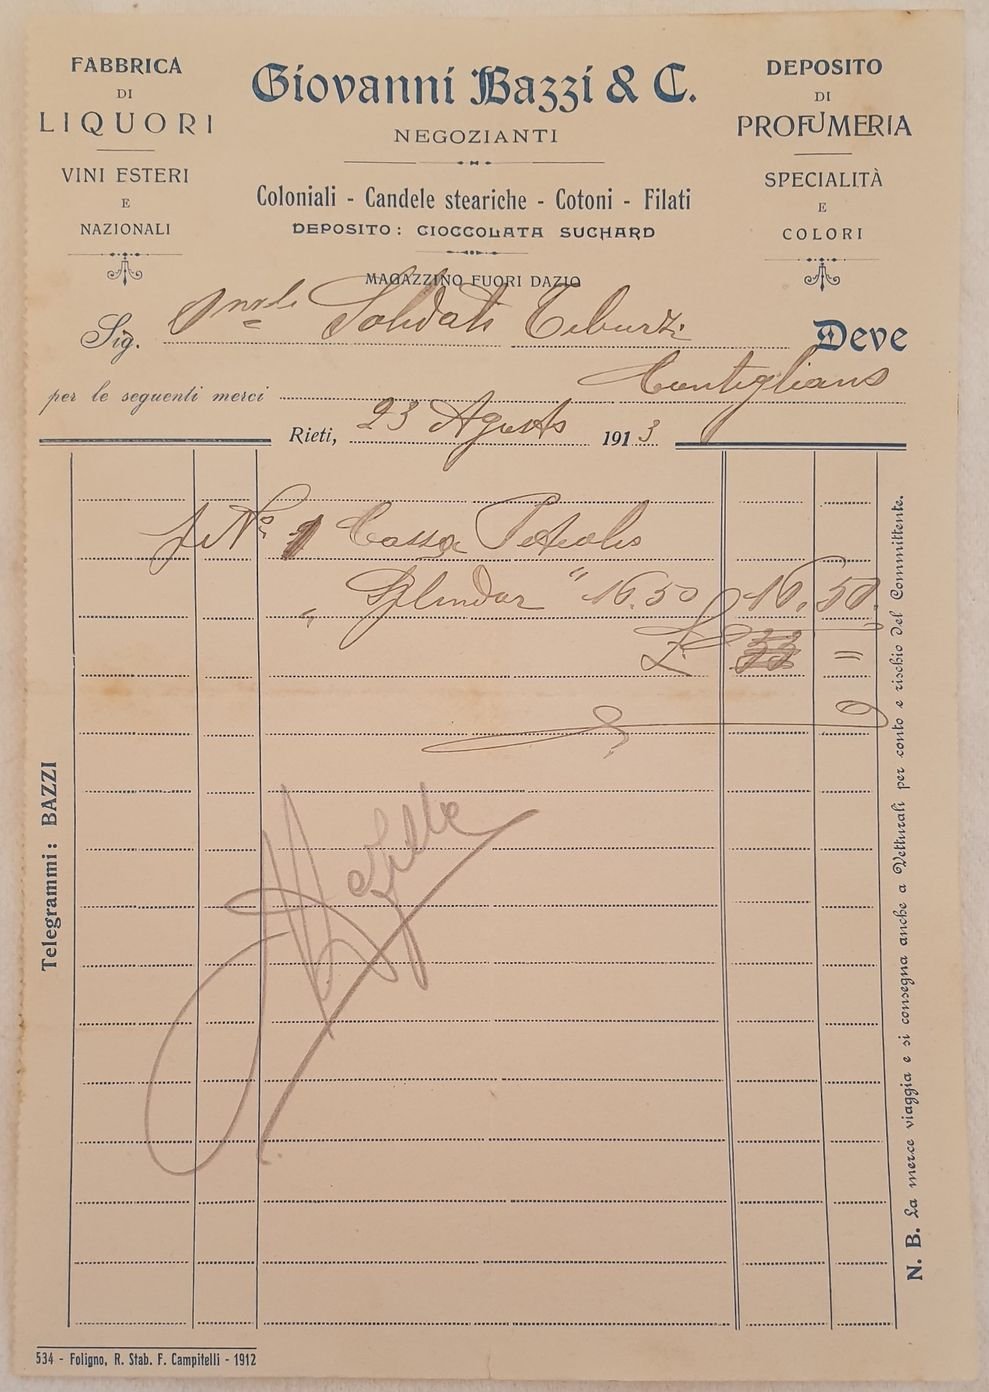 FABBRICA
DI
LIQUORI
VINI ESTERI
E
NAZIONALI
Giovanni Bazzi & C.
NEGOZIANTI
Coloniali - Candele steariche - Cotoni - Filati
DEPOSITO: CIOCCOLATA SUCHARD
MAGAZZINO FUORI DAZIO
DEPOSITO
DI
PROFUMERIA
SPECIALITÀ
E
COLORI
Sig. Soldati Tiburzi Deve
per le seguenti merci Contigliano
Rieti, 23 Agosto 1913
N° 1 Cassa Petrolio
" Splendor " 16.50 16.50
L. 33 =
Telegrammi: BAZZI
N. B. La merce viaggia e si consegna anche a Vetturali per conto e rischio del Committente.
534 - Foligno, R. Stab. F. Campitelli - 1912